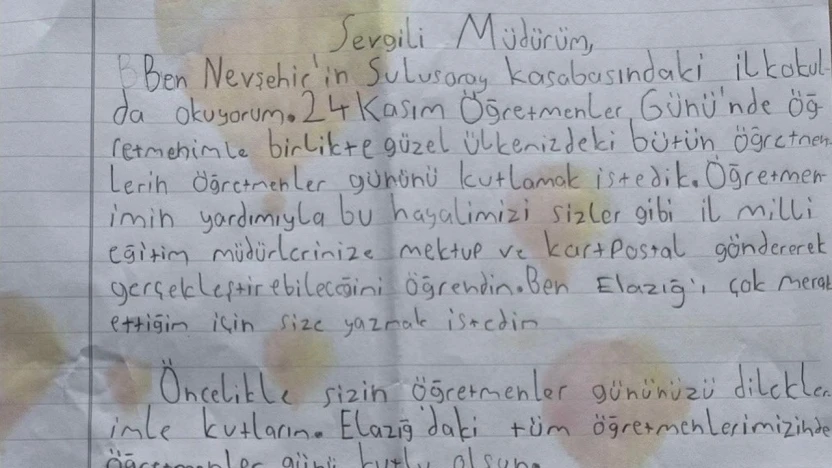 Sevgili Müdürüm,
Ben Nevşehir'in Sulusaray kasabasındaki ilkokul-
da okuyorum. 24 Kasım Öğretmenler Günü'nde öğ-
retmenimle birlikte güzel ülkenizdeki bütün öğretmen-
lerin öğretmenler gününü kutlamak istedik. Öğretmen-
imin yardımıyla bu hayalimizi sizler gibi il milli
eğitim müdürlerinize mektup ve kartpostal göndererek
gerçekleştirebileceğini öğrendin. Ben Elazığ'ı çok merak
ettiğim için size yazmak istedim
Öncelikle sizin öğretmenler gününüzü dilekler-
imle kutların. Elazığ'daki tüm öğretmenlerimizinde
öğretmenler günü kutlu olsun.